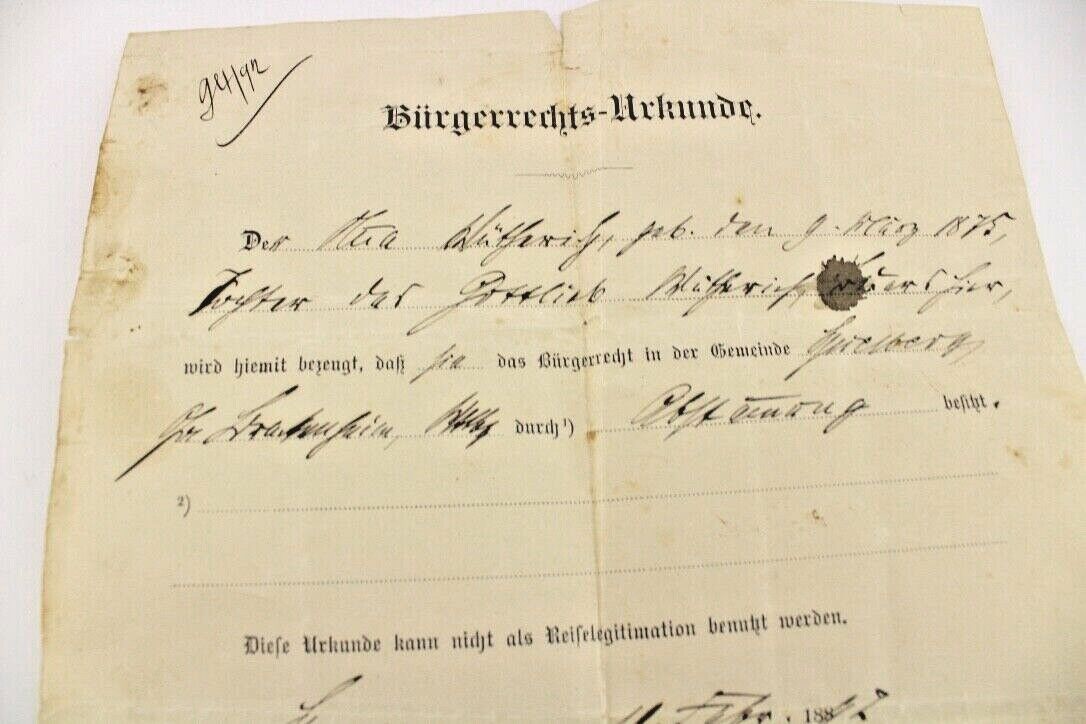 Bürgerrechts-Urkunde.
Der Wütherich, geb. den 9. März 1875,
Tochter des Gottlieb Wütherich, hier,
wird hiemit bezeugt, daß sie das Bürgerrecht in der Gemeinde
Brackenheim, Wttbg durch ¹) Abstammung besitzt.
²)
Diese Urkunde kann nicht als Reiselegitimation benutzt werden.
Febr. 1892